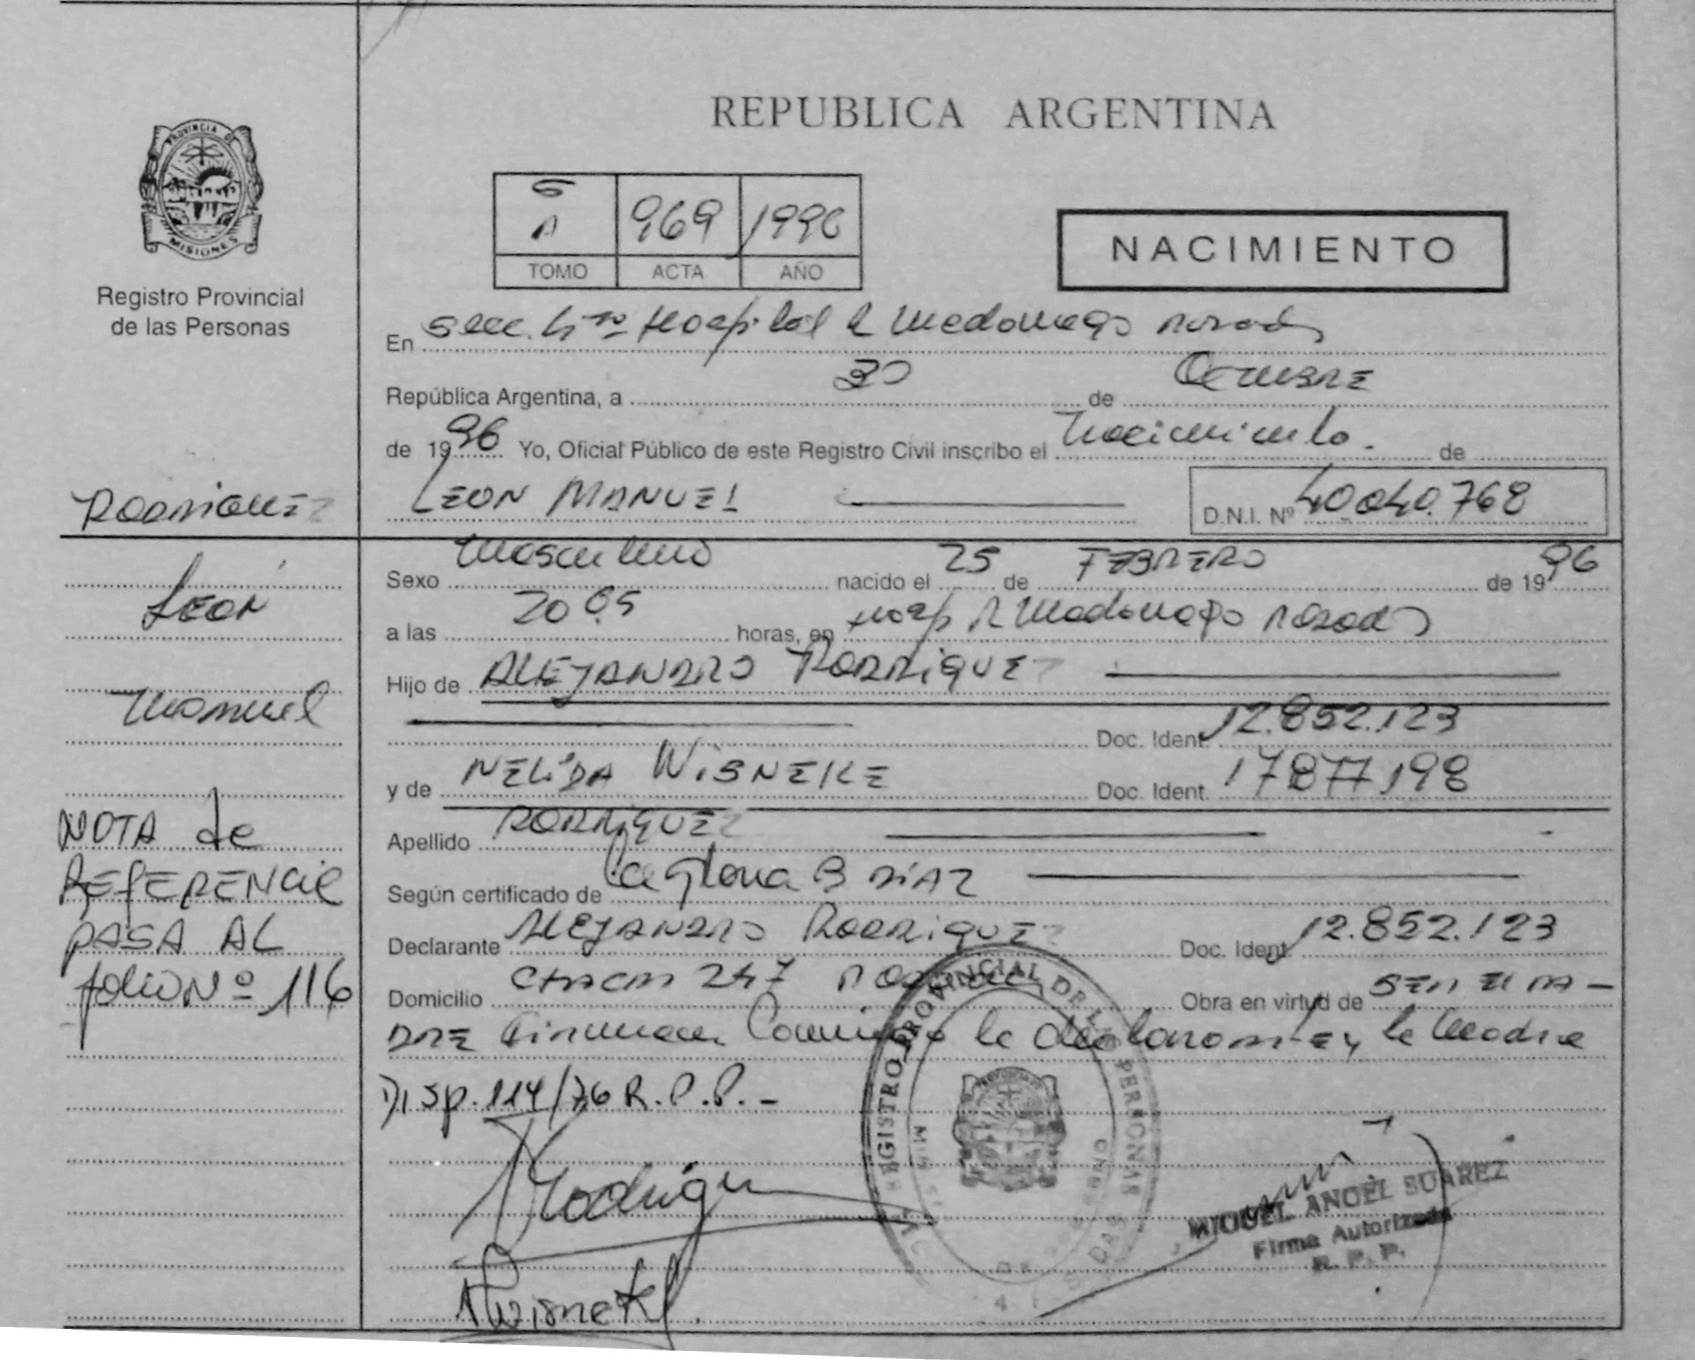 REPUBLICA ARGENTINA
PROVINCIA DE
MISIONES
Registro Provincial
de las Personas
5
A 969 1996
TOMO ACTA AÑO
NACIMIENTO
En Secc. 4ta Hospital R Madariaga Posadas
República Argentina, a 30 de OCTUBRE
de 1996 Yo, Oficial Público de este Registro Civil inscribo el Nacimiento. de
LEON MANUEL D.N.I. Nº 40.040.768
RODRIGUEZ
León
Manuel
NOTA de
REFERENCIA
PASA AL
folio Nº 116
Sexo Masculino nacido el 25 de FEBRERO de 1996
a las 20 05 horas, en Hosp R Madariaga Posadas
Hijo de ALEJANDRO RODRIGUEZ
Doc. Ident. 12.852.123
y de NELIDA WISNEKE Doc. Ident. 17.877.198
Apellido RODRIGUEZ
Según certificado de la Gloria B DIAZ
Declarante ALEJANDRO RODRIGUEZ Doc. Ident. 12.852.123
Domicilio CHACRA 247 Posadas Obra en virtud de SER EL PA-
DRE Firman Conmigo la declarante y la Madre
DISP. 114/76 R.P.P.-
REGISTRO PROVINCIAL DE LAS PERSONAS
Rodrigu
NWisneke
MIGUEL ANGEL SUAREZ
Firma Autorizada
R. P. P.